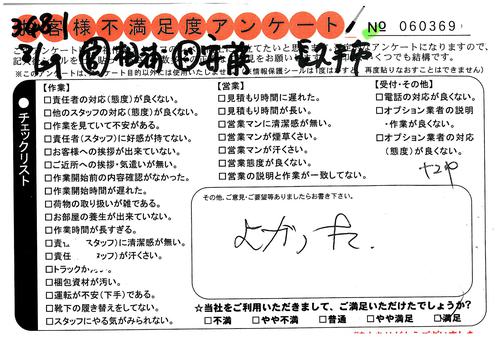 お客様不満足度アンケート
№ 060369
【作業】
□責任者の対応(態度)が良くない。
□他のスタッフの対応(態度)が良くない。
□作業を見ていて不安がある。
□責任者(スタッフ)に好感が持てない。
□お客様への挨拶が出来ていない。
□ご近所への挨拶・気遣いが無い。
□作業開始前の内容確認がなかった。
□作業開始時間が遅れた。
□荷物の取り扱いが雑である。
□お部屋の養生が出来ていない。
□作業時間が長すぎる。
□責 スタッフ)に清潔感が無い。
□責 ッフ)が汗くさい。
□トラックが
□梱包資材が汚い。
□運転が不安(下手)である。
□靴下の履き替えをしてない。
□スタッフにやる気がみられない。
【営業】
□見積もり時間に遅れた。
□見積もり時間が長い。
□営業マンに清潔感が無い。
□営業マンが煙草くさい。
□営業マンが汗くさい。
□営業態度が良くない。
□営業の説明と作業が一致してない。
【受付・その他】
□電話の対応が良くない。
□オプション業者の説明
・作業が良くない。
□オプション業者の対応
(態度)が良くない。
チェックリスト
その他、ご意見・ご要望等ありましたらお書き下さい。
よかった.
☆当社をご利用いただきまして、ご満足いただけたでしょうか?
□不満 □やや不満 □普通 □やや満足 □満足